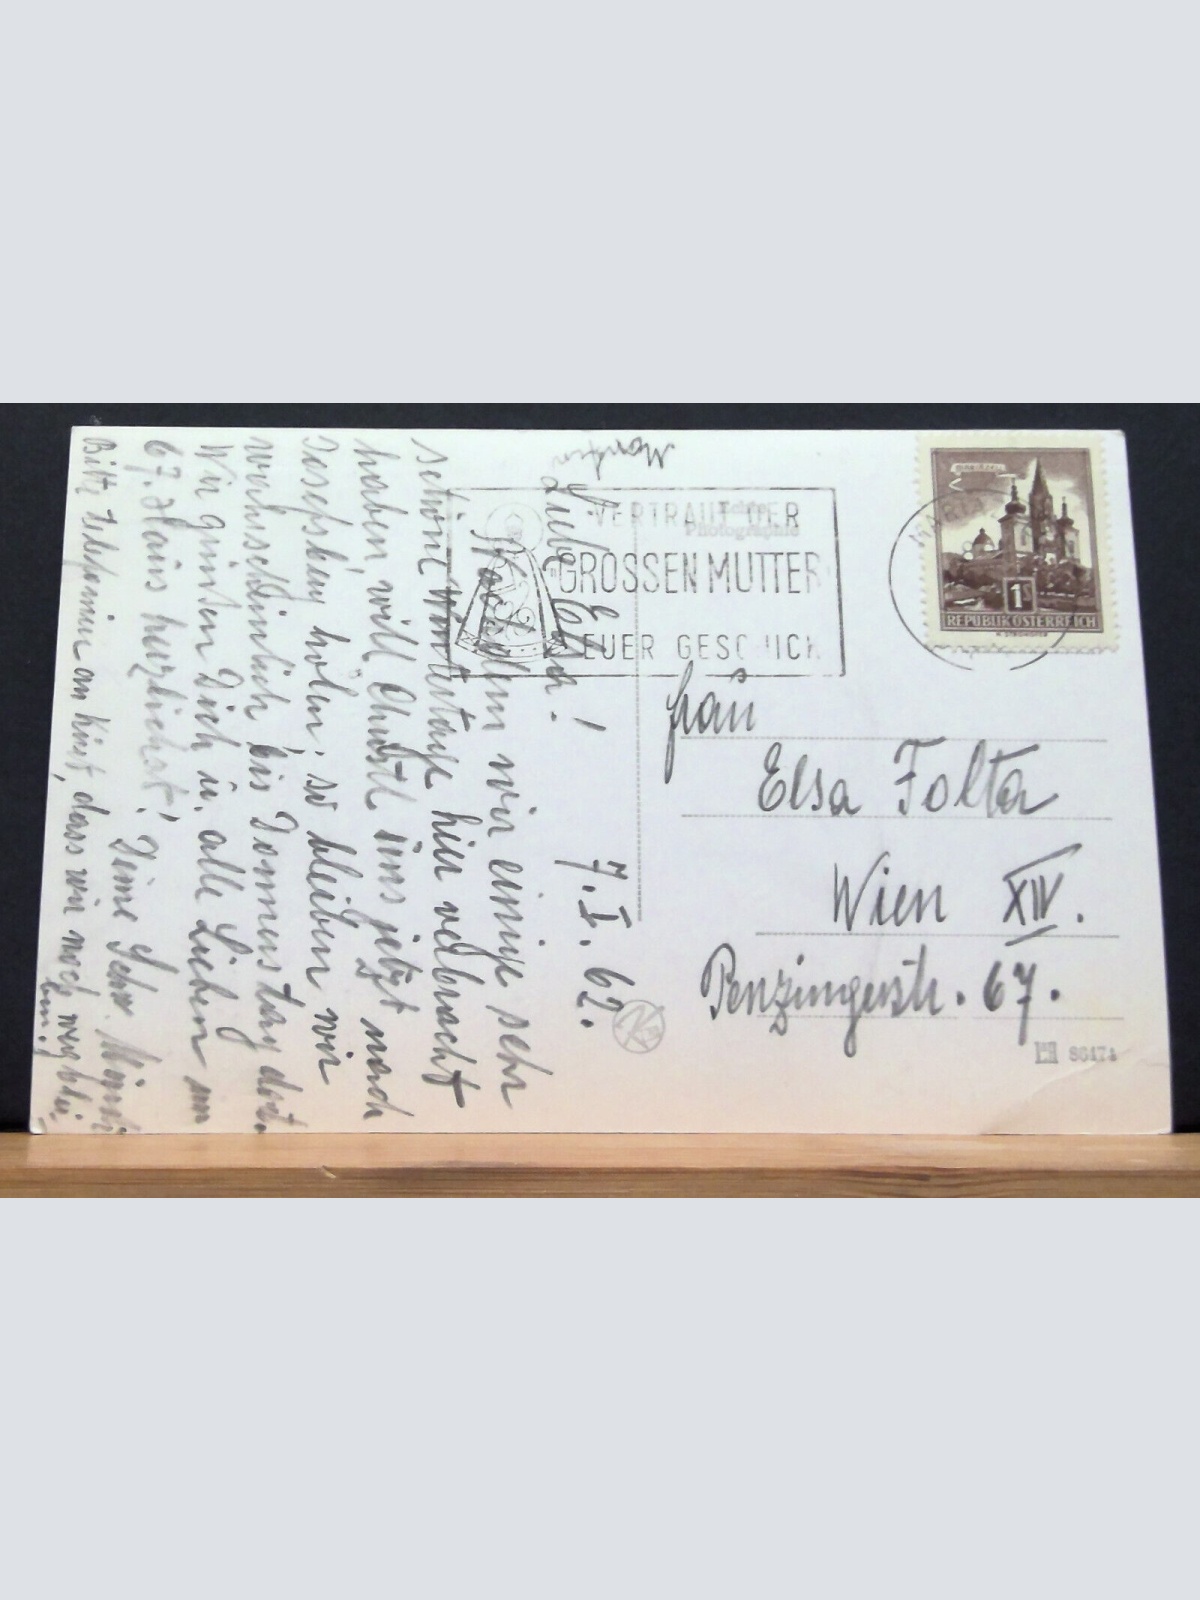 7. I. 62.
Liebe !
Nachdem wir einige sehr
schöne Wintertage hier verbracht
haben, will Christl uns jetzt nach
Josefsberg holen; so bleiben wir
wahrscheinlich bis Donnerstag dort.
Wir grüssen Dich u. alle Lieben im
67. Haus herzlichst! Deine Schw.
Bitte telefonier an, dass wir noch wegblei-
ben!
VERTRAUT DER
GROSSEN MUTTER
EUER GESCHICK
Echte
Photographie
MARIA
MARIAZELL
1S
REPUBLIK ÖSTERREICH
Frau
Elsa Folta
Wien XIV.
Penzingerstr. 67.
86474